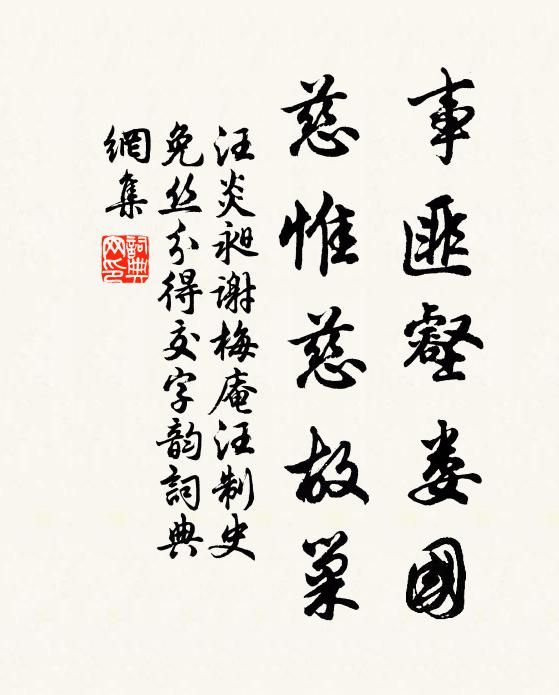 事匪壑娄國
慈惟慈故巢
汪炎昶謝梅庵汪制史
免丝分得交字韵詞典
網集
詞典
网印